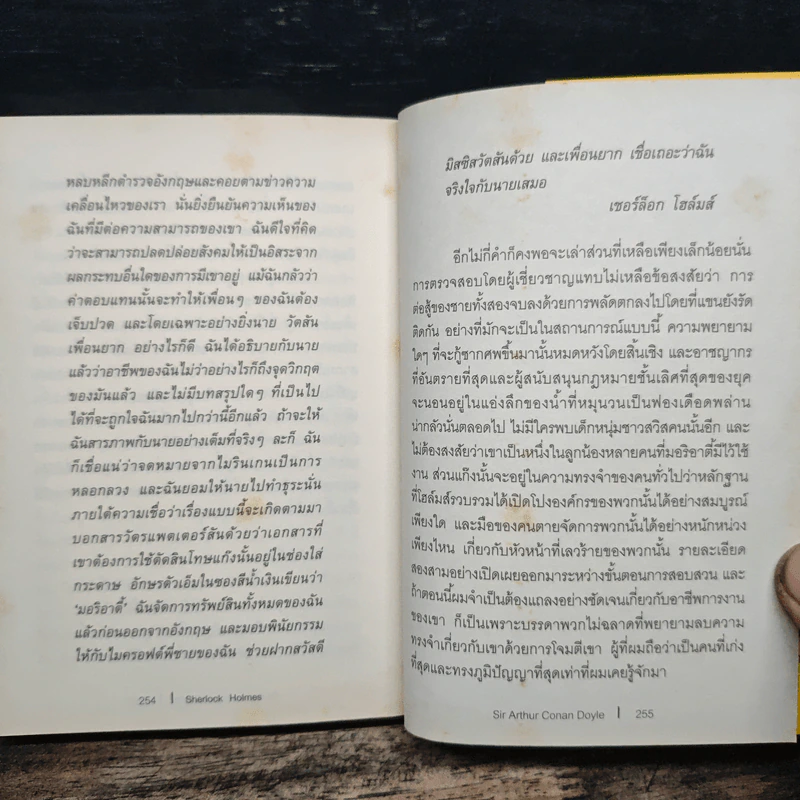 หลบหลีกตำรวจอังกฤษและคอยตามข่าวความ
เคลื่อนไหวของเรา นั่นยิ่งยืนยันความเห็นของ
ฉันที่มีต่อความสามารถของเขา ฉันดีใจที่คิด
ว่าจะสามารถปลดปล่อยสังคมให้เป็นอิสระจาก
ผลกระทบอื่นใดของการมีเขาอยู่ แม้ฉันกลัวว่า
ค่าตอบแทนนั้นจะทำให้เพื่อนๆ ของฉันต้อง
เจ็บปวด และโดยเฉพาะอย่างยิ่งนาย วัตสัน
เพื่อนยาก อย่างไรก็ดี ฉันได้อธิบายกับนาย
แล้วว่าอาชีพของฉันไม่ว่าอย่างไรก็ถึงจุดวิกฤต
ของมันแล้ว และไม่มีบทสรุปใดๆ ที่เป็นไป
ได้ที่จะถูกใจฉันมากไปกว่านี้อีกแล้ว ถ้าจะให้
ฉันสารภาพกับนายอย่างเต็มที่จริงๆ ละก็ ฉัน
ก็เชื่อแน่ว่าจดหมายจากไมรินเกนเป็นการ
หลอกลวง และฉันยอมให้นายไปทำธุระนั่น
ภายใต้ความเชื่อว่าเรื่องแบบนี้จะเกิดตามมา
บอกสารวัตรแพตเตอร์สันด้วยว่าเอกสารที่
เขาต้องการใช้ตัดสินโทษแก๊งนั้นอยู่ในช่องใส่
กระดาษ อักษรตัวเอ็มในซองสีน้ำเงินเขียนว่า
'มอริอาตี้' ฉันจัดการทรัพย์สินทั้งหมดของฉัน
แล้วก่อนออกจากอังกฤษ และมอบพินัยกรรม
ให้กับไมครอฟต์พี่ชายของฉัน ช่วยฝากสวัสดี
254 | Sherlock Holmes
มิสซิสวัตสันด้วย และเพื่อนยาก เชื่อเถอะว่าฉัน
จริงใจกับนายเสมอ
เชอร์ล็อก โฮล์มส์
อีกไม่กี่คำก็คงพอจะเล่าส่วนที่เหลือเพียงเล็กน้อยนั่น
การตรวจสอบโดยผู้เชี่ยวชาญแทบไม่เหลือข้อสงสัยว่า การ
ต่อสู้ของชายทั้งสองจบลงด้วยการพลัดตกลงไปโดยที่แขนยังรัด
ติดกัน อย่างที่มักจะเป็นในสถานการณ์แบบนี้ ความพยายาม
ใดๆ ที่จะกู้ซากศพขึ้นมานั้นหมดหวังโดยสิ้นเชิง และอาชญากร
ที่อันตรายที่สุดและผู้สนับสนุนกฎหมายชั้นเลิศที่สุดของยุค
จะนอนอยู่ในแอ่งลึกของน้ำที่หมุนวนเป็นฟองเดือดพล่าน
น่ากลัวนั่นตลอดไป ไม่มีใครพบเด็กหนุ่มชาวสวิสคนนั้นอีก และ
ไม่ต้องสงสัยว่าเขาเป็นหนึ่งในลูกน้องหลายคนที่มอริอาตี้มีไว้ใช้
งาน ส่วนแก๊งนั้นจะอยู่ในความทรงจำของคนทั่วไปว่าหลักฐาน
ที่โฮล์มส์รวบรวมได้เปิดโปงองค์กรของพวกนั้นได้อย่างสมบูรณ์
เพียงใด และมือของคนตายจัดการพวกนั้นได้อย่างหนักหน่วง
เพียงไหน เกี่ยวกับหัวหน้าที่เลวร้ายของพวกนั้น รายละเอียด
สองสามอย่างเปิดเผยออกมาระหว่างขั้นตอนการสอบสวน และ
ถ้าตอนนี้ผมจำเป็นต้องแถลงอย่างชัดเจนเกี่ยวกับอาชีพการงาน
ของเขา ก็เป็นเพราะบรรดาพวกไม่ฉลาดที่พยายามลบความ
ทรงจำเกี่ยวกับเขาด้วยการโจมตีเขา ผู้ที่ผมถือว่าเป็นคนที่เก่ง
ที่สุดและทรงภูมิปัญญาที่สุดเท่าที่ผมเคยรู้จักมา
Sir Arthur Conan Doyle | 255